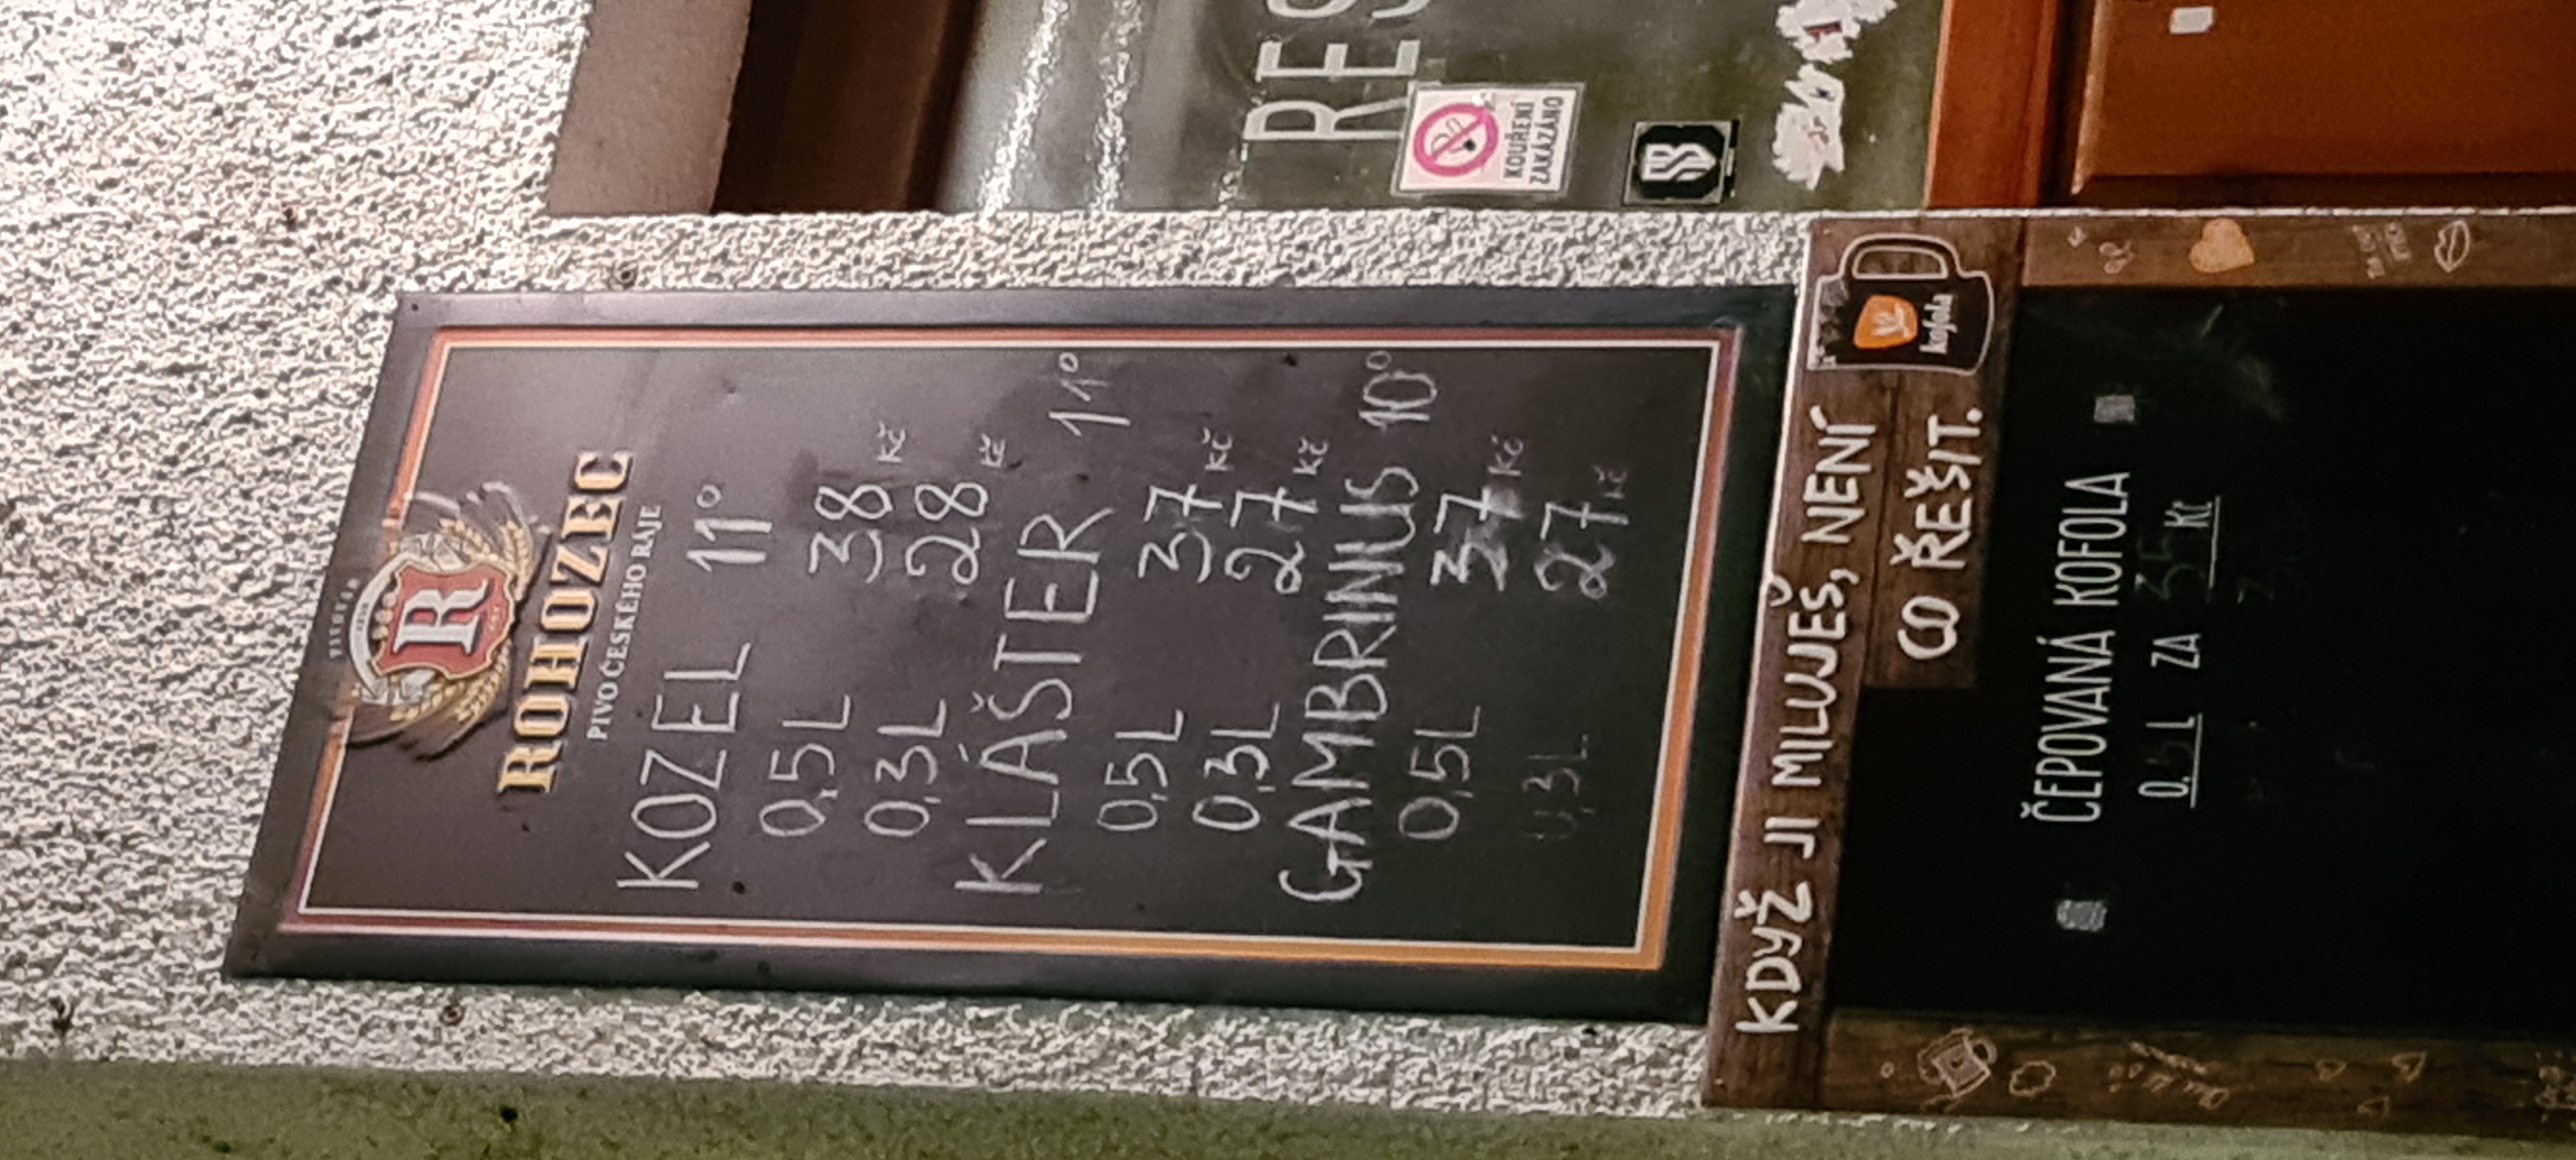 RES
KOUŘENÍ
ZAKÁZÁNO
R
ROHOZEC
PIVO ČESKÉHO RÁJE
KOZEL 11°
0,5L 38 Kč
0,3L 28 Kč
KLÁŠTER 11°
0,5L 37 Kč
0,3L 27 Kč
GAMBRINUS 10°
0,5L 37 Kč
0,3L 27 Kč
kofola
KDYŽ JI MILUJEŠ, NENÍ
CO ŘEŠIT.
ČEPOVANÁ KOFOLA
L ZA 35 Kč